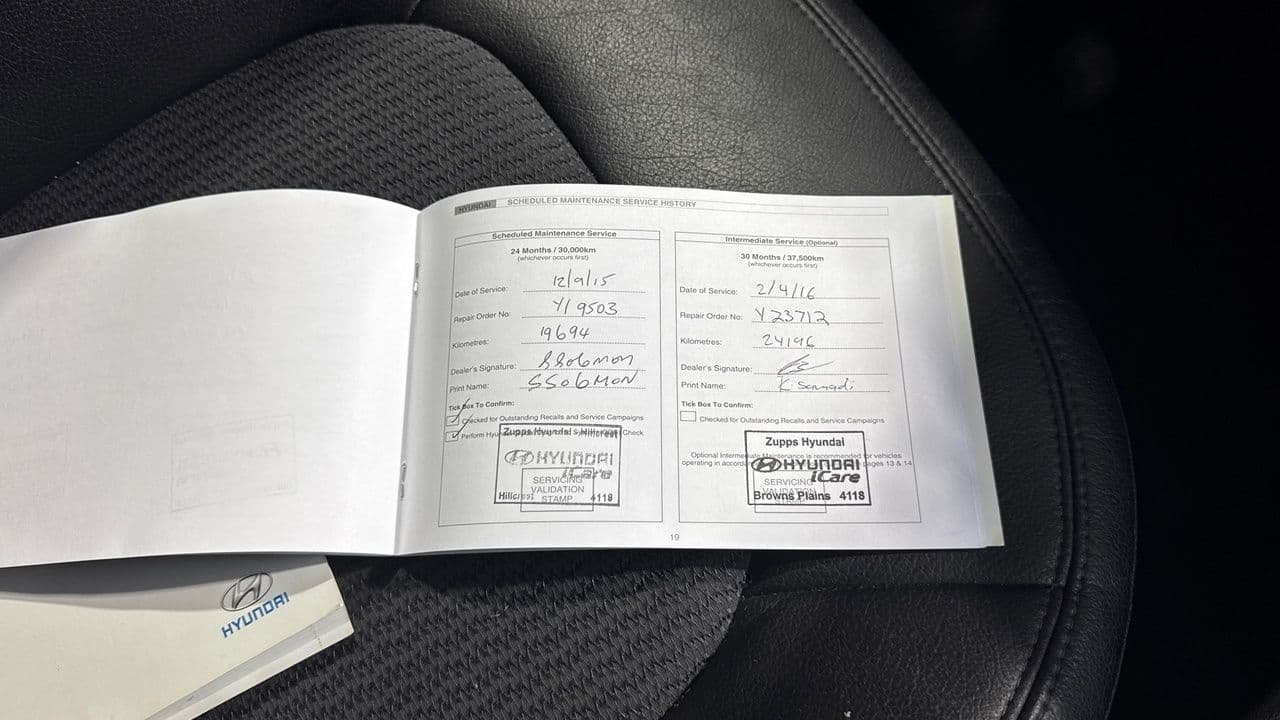 HYUNDAI SCHEDULED MAINTENANCE SERVICE HISTORY
Scheduled Maintenance Service
24 Months / 30,000km
(whichever occurs first)
Date of Service: 12/9/15
Repair Order No: Y19503
Kilometres: 19694
Dealer's Signature: SSolomon
Print Name: SSOLOMON
Tick Box To Confirm:
Checked for Outstanding Recalls and Service Campaigns
Perform Check
Zupps Hyundai Hillcrest
HYUNDAI
iCare
SERVICING
VALIDATION
STAMP
Hillcrest 4118
Intermediate Service (Optional)
30 Months / 37,500km
(whichever occurs first)
Date of Service: 2/4/16
Repair Order No: Y23712
Kilometres: 24196
Dealer's Signature:
Print Name: K.
Tick Box To Confirm:
Checked for Outstanding Recalls and Service Campaigns
Zupps Hyundai
Optional Intermediate Maintenance is recommended for vehicles
operating in pages 13 & 14
HYUNDAI
iCare
SERVICING
VALIDATION
STAMP
Browns Plains 4118
19
HYUNDAI